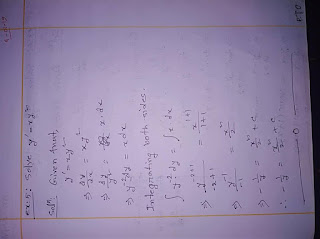 Ex-5: Solve y' = xy²
Solⁿ: Given that,
y' = xy²
⇒ dy/dx = xy²
⇒ dy/y² = x·dx
⇒ y⁻²dy = xdx
Integrating both sides.
∫ y⁻² dy = ∫ x dx
⇒ y⁻²⁺¹/-2+1 = x¹⁺¹/1+1
⇒ y⁻¹/-1 = x²/2
⇒ -1/y = x²/2 + c
∴ -1/y = x²/2 + c